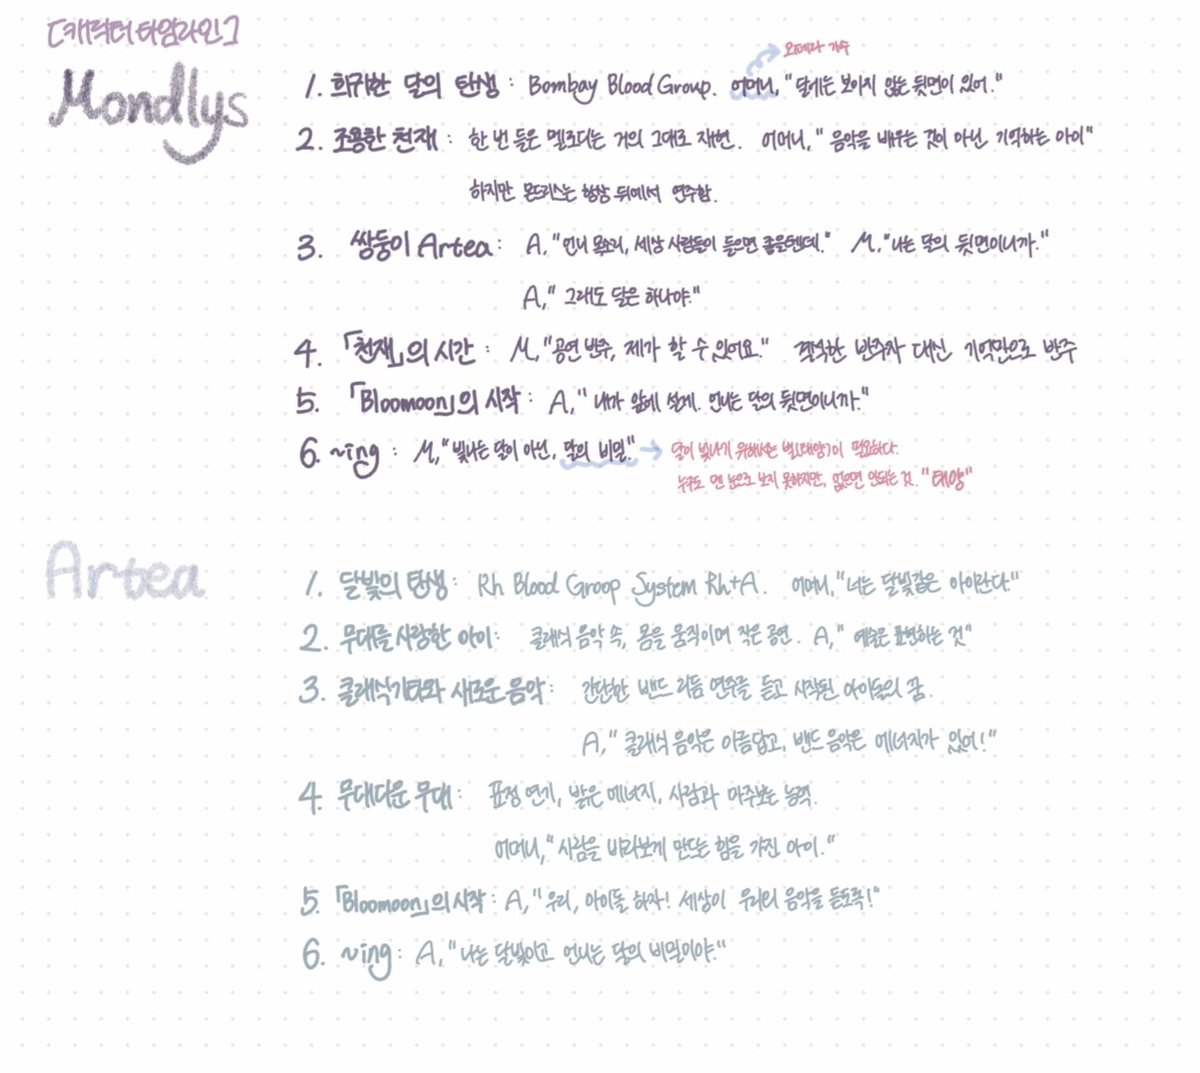 [캐릭터 타임라인]
Mondlys
오페라 가수
1. 희귀한 달의 탄생 : Bombay Blood Group. 어머니, "달에는 보이지 않는 뒷면이 있어."
2. 조용한 천재 : 한 번 들은 멜로디는 거의 그대로 재현. 어머니, "음악을 배우는 것이 아닌 기억하는 아이"
하지만 몬드리스는 항상 뒤에서 연주함.
3. 쌍둥이 Artea : A, "언니 목소리, 세상 사람들이 들으면 좋을텐데." M, "나는 달의 뒷면이니까."
A, "그래도 달은 하나야."
4. 「천재」의 시간 : M, "공연 반주, 제가 할 수 있어요." 결석한 반주자 대신 기억만으로 반주
5. 「Bloomoon」의 시작 : A, "내가 앞에 설게. 언니는 달의 뒷면이니까."
6. ~ing : M, "빛나는 달이 아닌, 달의 비밀." → 달이 빛나기 위해서는 별(태양)이 필요하다.
누구도 맨 눈으로 보지 못하지만, 없으면 안되는 것. "태양"
Artea
1. 달빛의 탄생 : Rh Blood Groop System Rh+A. 어머니, "너는 달빛같은 아이란다."
2. 무대를 사랑한 아이 : 클래식 음악 속, 몸을 움직이며 작은 공연. A, "예술은 표현하는 것"
3. 클래식기타와 새로운 음악 : 간단한 밴드 리듬 연주를 듣고 시작된 아이돌의 꿈.
A, "클래식 음악은 아름답고, 밴드 음악은 에너지가 있어!"
4. 무대다운 무대 : 표정 연기, 밝은 에너지, 사람과 마주보는 능력.
어머니, "사람을 바라보게 만드는 힘을 가진 아이."
5. 「Bloomoon」의 시작 : A, "우리, 아이돌 하자! 세상이 우리의 음악을 듣도록!"
6. ~ing : A, "나는 달빛이고 언니는 달의 비밀이야."